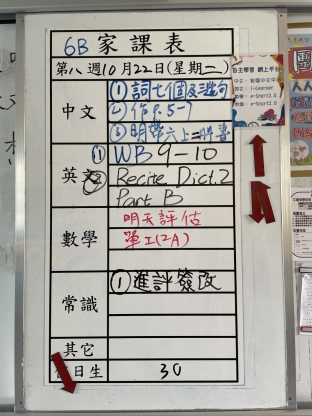 6B 家課表
第八週10月22日(星期二)
中文
①詞七個及造句
②作P.5-7
③明帶六上一冊書
英文
(1) WB 9-10
② Recite Dict.2
Part B
數學
明天評估
單工(2A)
常識
① 進評簽改
其它
日生
30
自主學習 網上平台